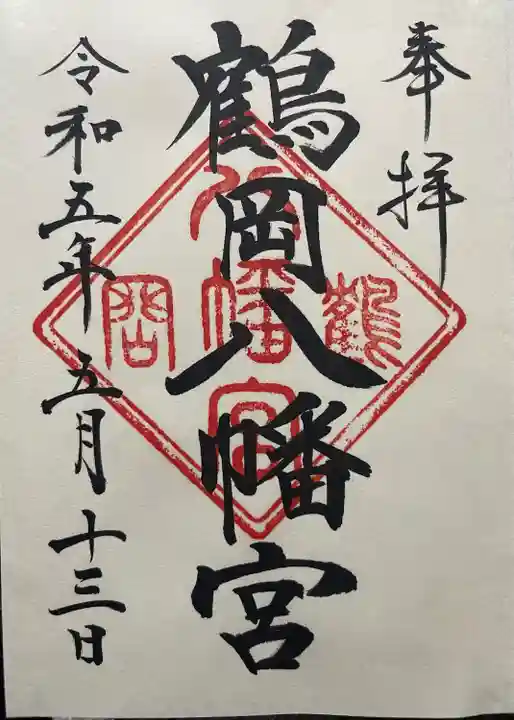 奉拝
鶴岡八幡宮
鶴
八幡宮
岡
令和五年五月十三日